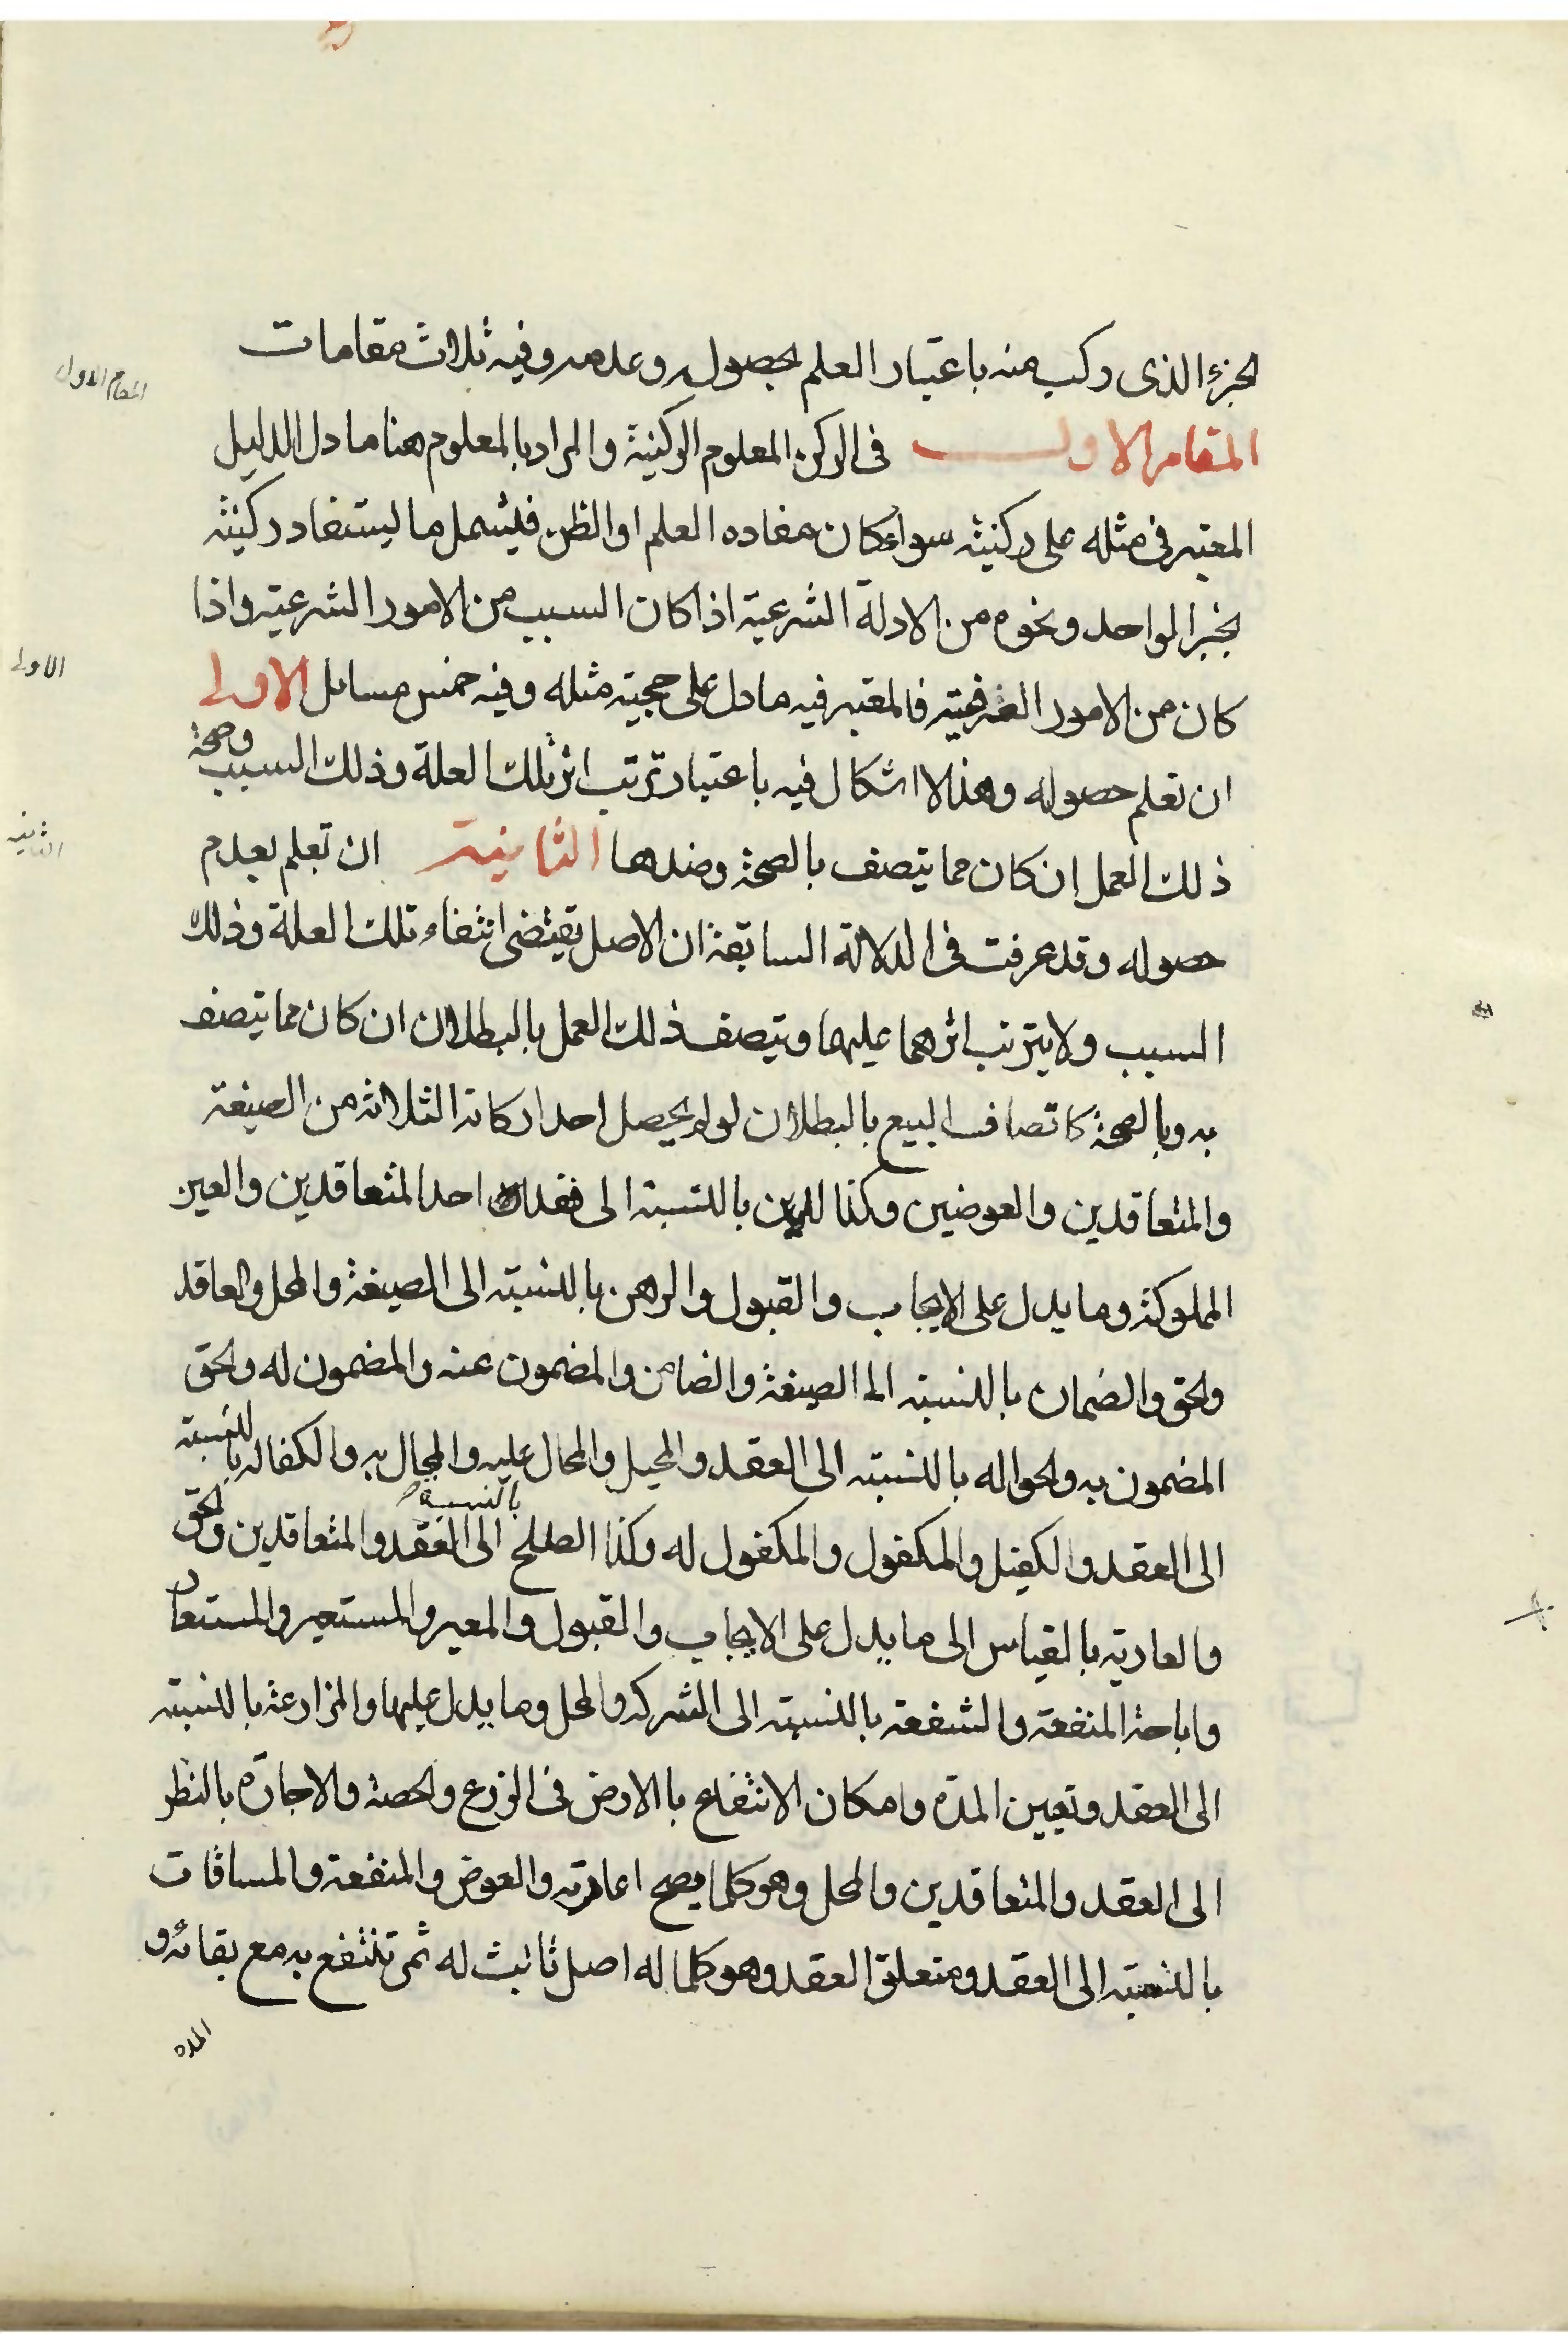 الجزء الذى ركب منه باعتبار العلم بحصوله وعدمه وفيه ثلاث مقامات
المقام الاول
المقام الاول فى الركن المعلوم الركنية والمراد بالمعلوم هنا ما دل الدليل
المعتبر فى مثله على ركنيته سواء كان مفاده العلم او الظن فليشمل ما يستفاد ركنيته
بخبر الواحد ونحوه من الادلة الشرعية اذا كان السبب من الامور الشرعية واذا
كان من الامور العرفية فالمعتبر فيه ما دل على حجيته مثله وفيه خمس مسائل الاولى
الاولى
ان تعلم حصوله وهذا لا اشكال فيه باعتبار ترتب اثر تلك العلة وذلك السبب وصحة
ذلك العمل ان كان مما يتصف بالصحة وضدها الثانية ان تعلم بعدم
الثانيه
حصوله وقد عرفت فى الدلالة السابقة ان الاصل يقتضى انتفاء تلك العلة وذلك
السبب ولا يترتب اثرهما عليهما ويتصف ذلك العمل بالبطلان ان كان مما يتصف
به وبالصحة كاتصاف البيع بالبطلان لو لم يحصل احد اركانه الثلاثه من الصيغة
والمتعاقدين والعوضين وكذا الدين بالنسبة الى فقدان احد المتعاقدين والعين
المملوكة وما يدل على الايجاب والقبول والرهن بالنسبة الى الصيغة والمحل والعاقد
والحق والضمان بالنسبة الى الصيغة والضامن والمضمون عنه والمضمون له والحق
المضمون به والحواله بالنسبة الى العقد والمحيل والمحال عليه والمحال به والكفاله بالنسبة
الى العقد والكفيل والمكفول والمكفول له وكذا الصلح بالنسبة الى العقد والمتعاقدين والحق
والعارية بالقياس الى ما يدل على الايجاب والقبول والمعير والمستعير والمستعار
واباحة المنفعة والشفعة بالنسبة الى الشركه والمحل وما يدل عليها والمزارعة بالنسبة
الى العقد وتعيين المدة وامكان الانتفاع بالارض فى الزرع والحصة والاجارة بالنظر
الى العقد والمتعاقدين والمحل وهو كلما يصح اعارته والعوض والمنفعة والمساقات
بالنسبة الى العقد ومتعلق العقد وهو كلما له اصل ثابت له ثمر تنتفع به مع بقائه و
المده